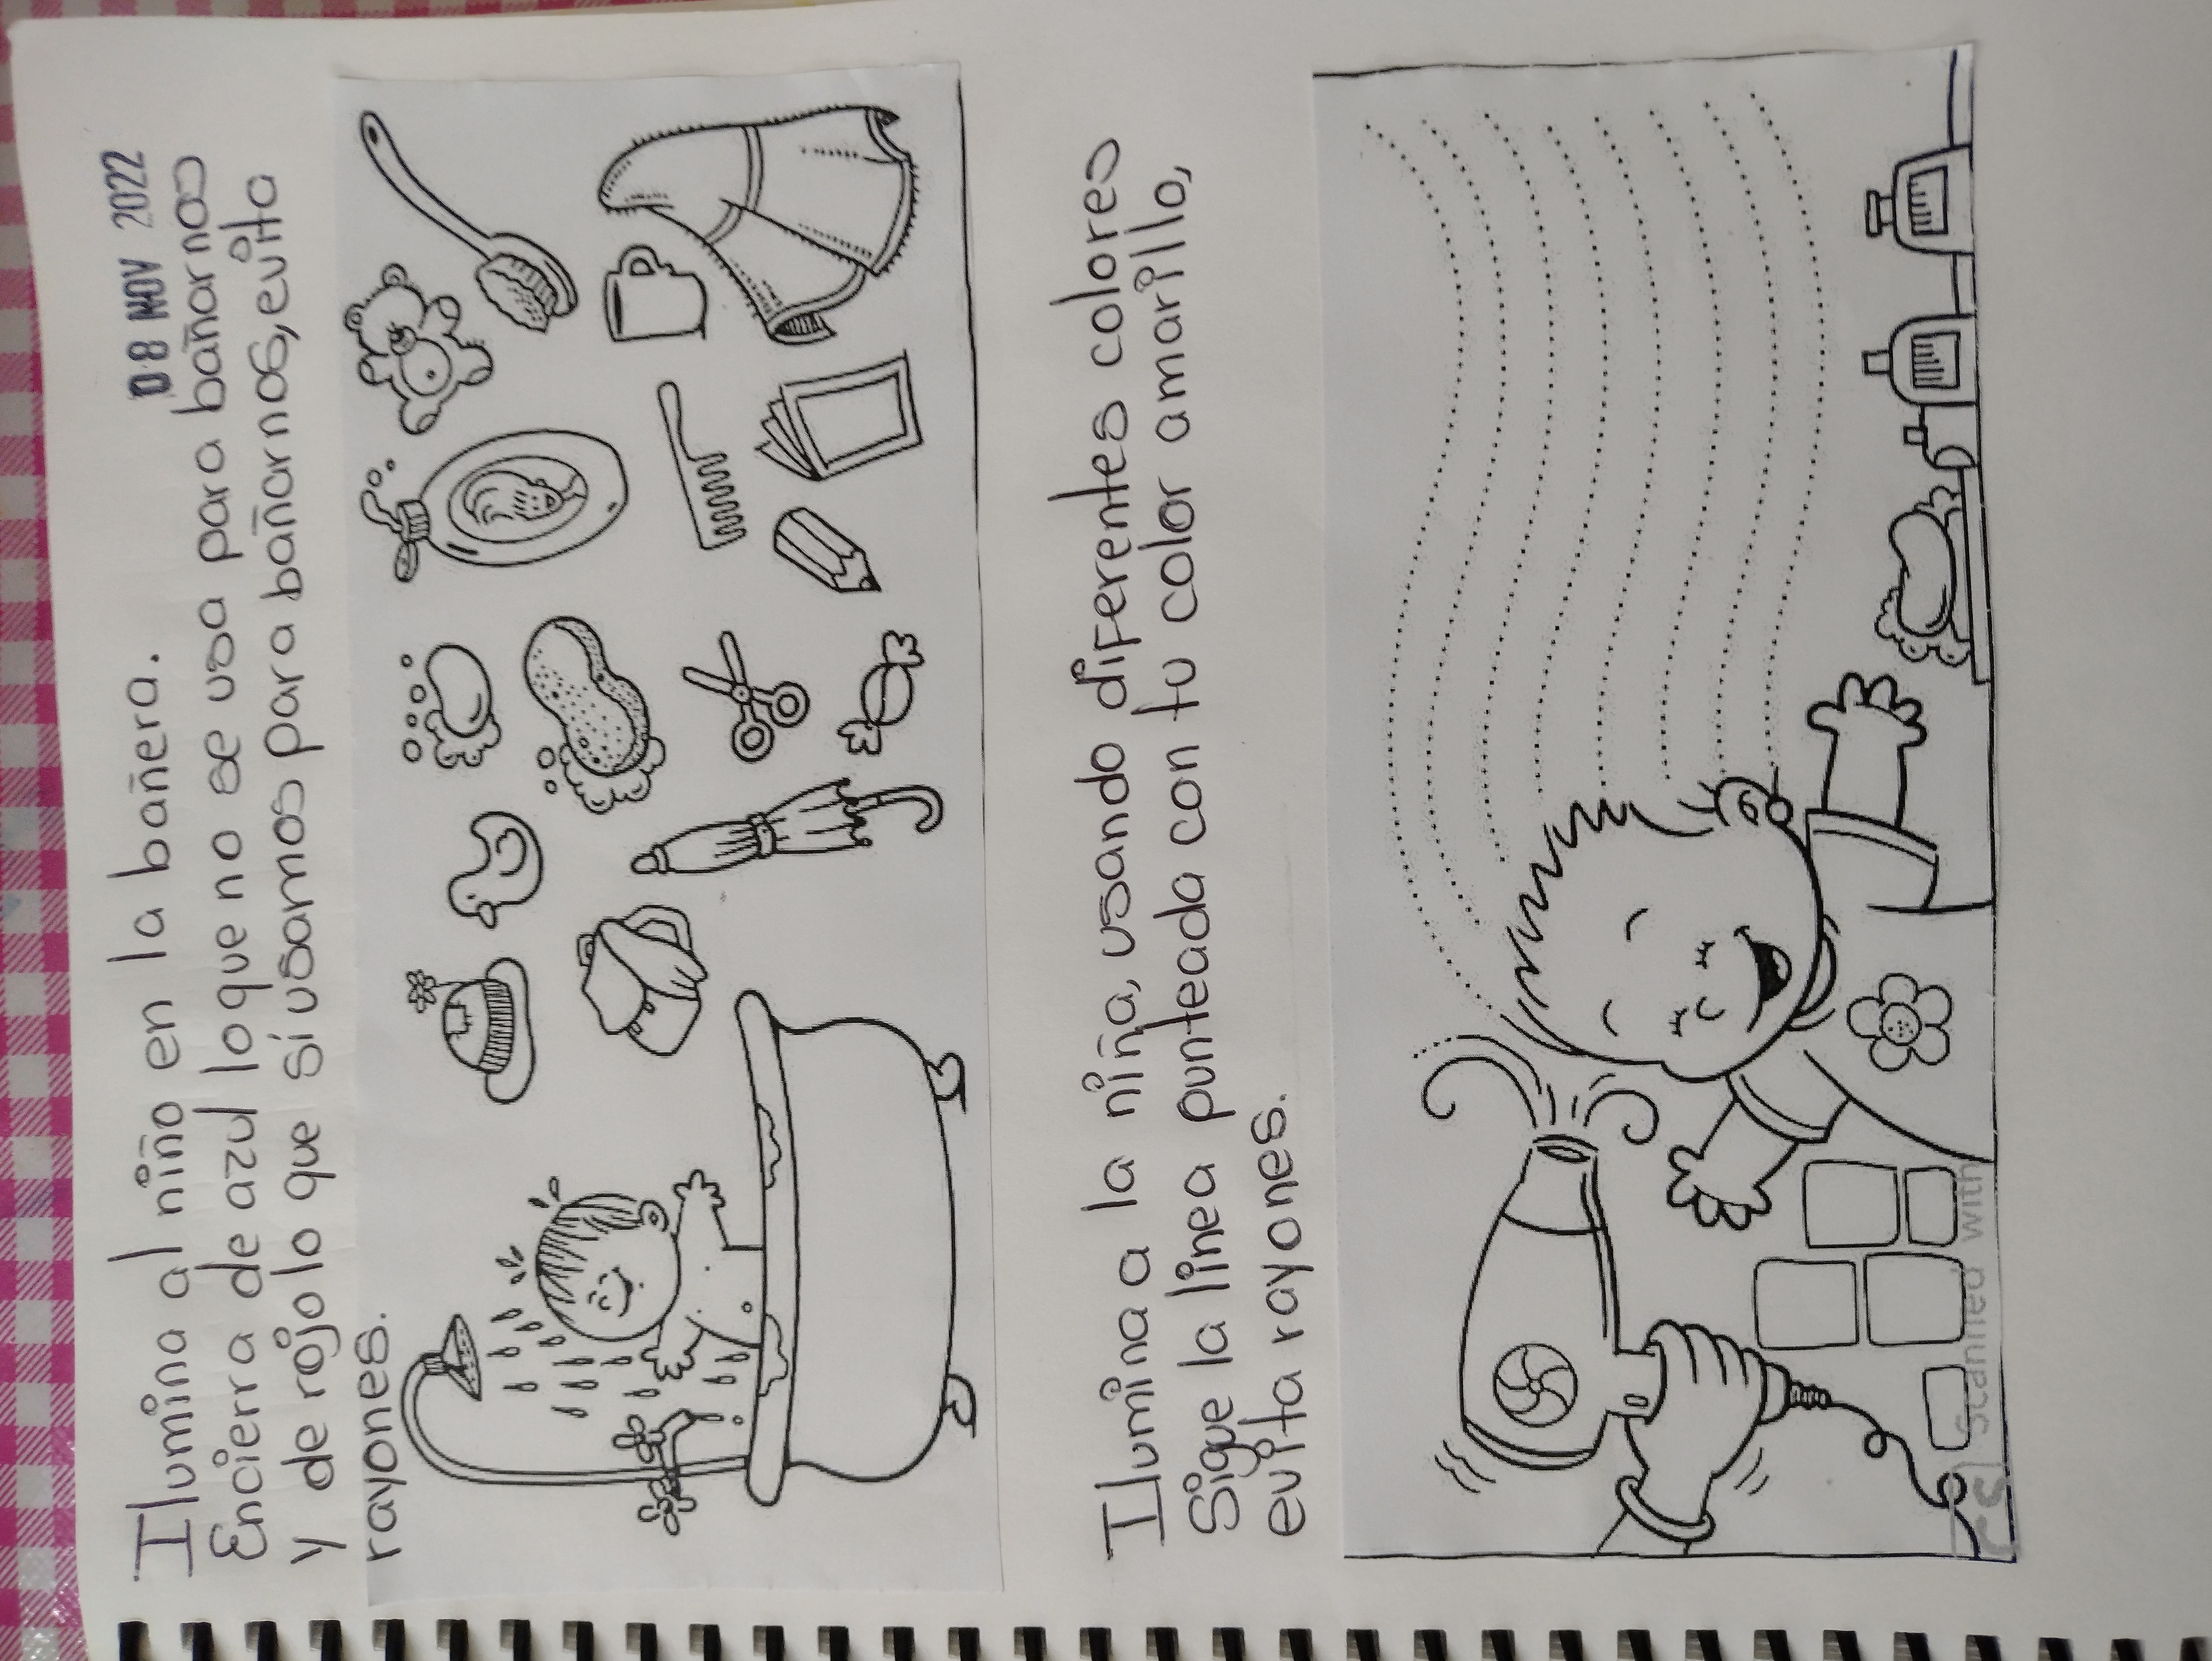 08 NOV 2022
Ilumina al niño en la bañera.
Encierra de azul lo que no se usa para bañarnos
y de rojo lo que sí usamos para bañarnos, evita
rayones.
Ilumina a la niña, usando diferentes colores
Sigue la línea punteada con tu color amarillo,
evita rayones.
CS Scanned with